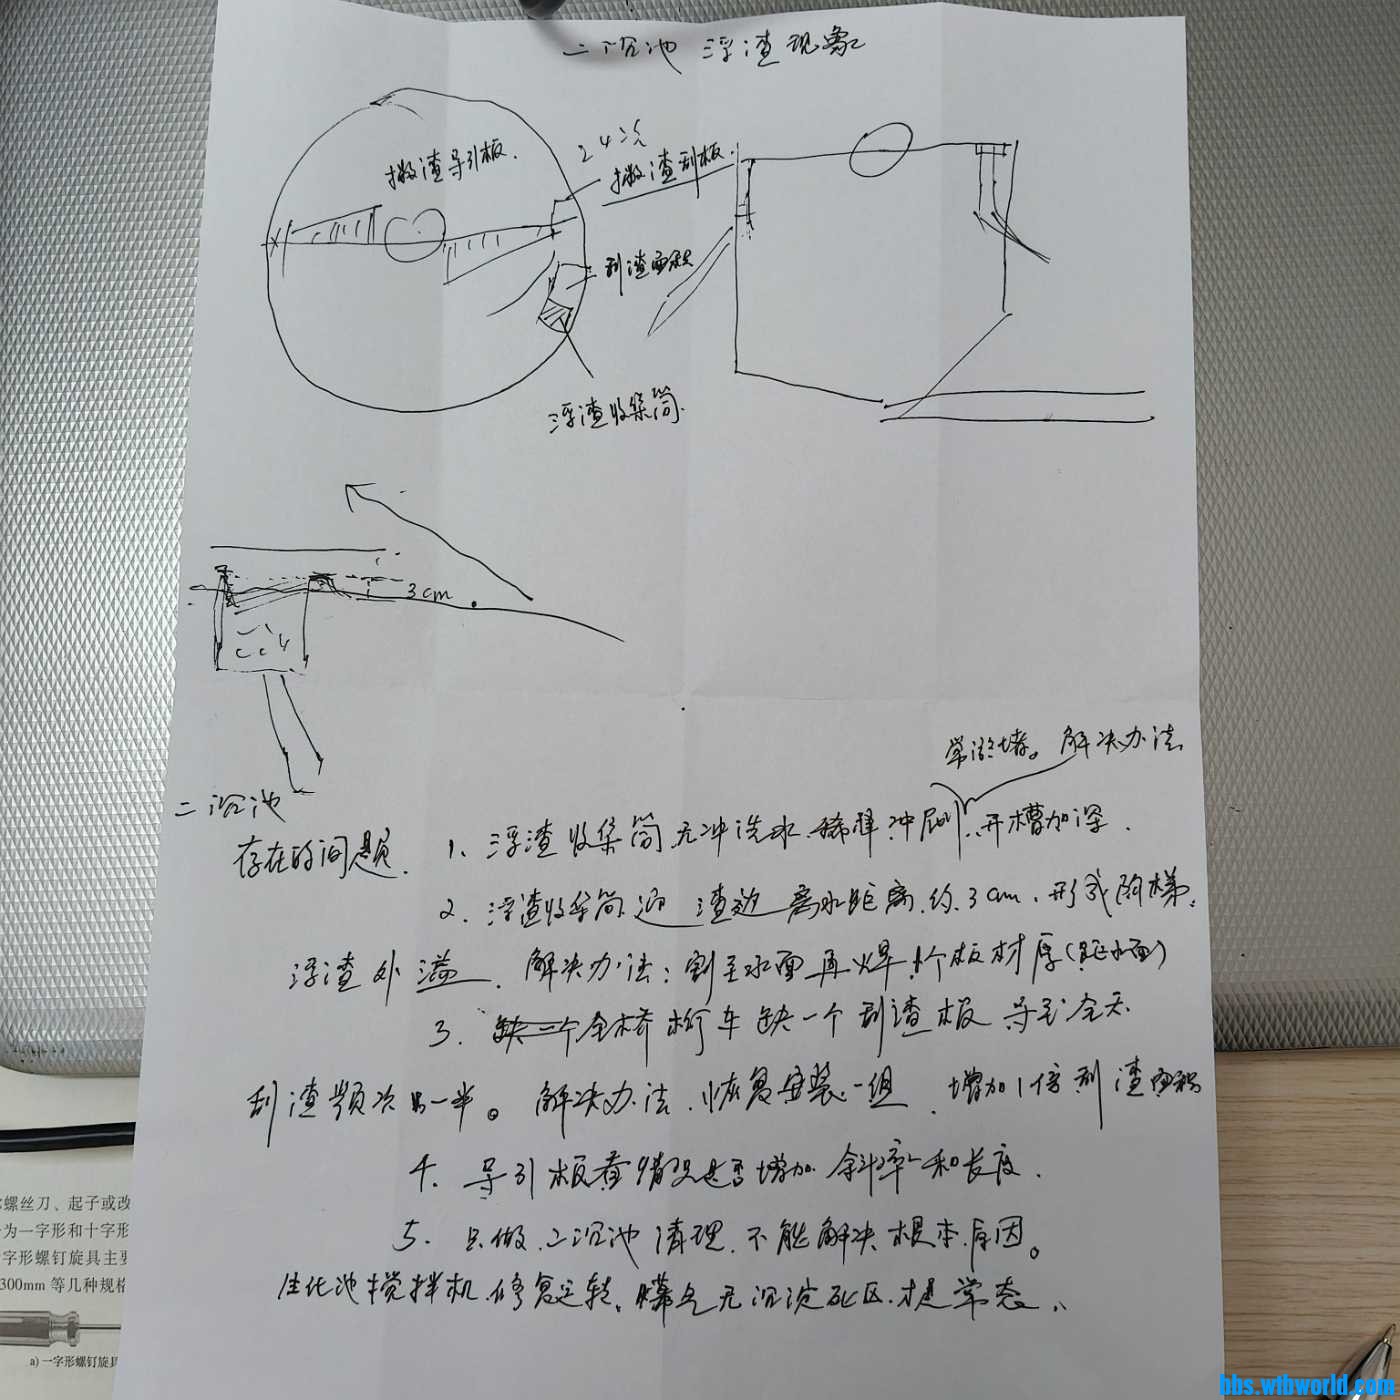 二沉池 浮渣现象
撇渣导引板.
24次
撇渣刮板.
刮渣面积
浮渣收集筒.
3cm
常淤堵。解决办法
二沉池
存在的问题.
1、浮渣收集筒无冲洗水.稀释冲刷.开槽加深.
2. 浮渣收集筒 迎 渣边离水距离.约.3cm.形成阶梯.
浮渣外溢.解决办法:割至水面再焊1个板材厚(距水面)
3. 缺一个全桥桁车缺一个刮渣板 导至全天
刮渣频次 一半。解决办法.恢复安装一组.增加1倍刮渣面积
4. 导引板看情况是否增加 斜率和长度.
5. 只做.二沉池清理.不能解决根本原因。
生化池搅拌机.修复运转.曝气无沉淀死区.才是常态.
螺丝刀、起子或改
为一字形和十字形
字形螺钉旋具主要
300mm 等几种规格
a) 一字形螺钉旋具
bbs.wtbworld.com